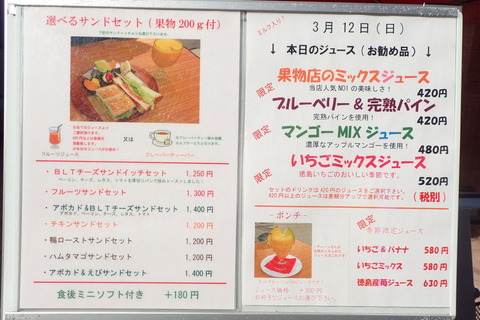 選べるサンドセット(果物200g付)
下記のサンドイッチよりお選び下さいませ。
又は
フルーツジュース
フレーバーティーバー
・BLTチーズサンドイッチセット 1,250円
ベーコン、チーズ、レタス、トマトを厚切りパンで挟みトーストしました!
・フルーツサンドセット 1,300円
・アボカド&BLTチーズサンドセット 1,400円
アボカド、ベーコン、チーズ、レタス、トマト
・チキンサンドセット 1,200円
・鴨ローストサンドセット 1,200円
・ハムタマゴサンドセット 1,200円
・アボカド&えびサンドセット 1,400円
食後ミニソフト付き +180円
ミルク入り!
3月12日(日)
↓ 本日のジュース(お勧め品) ↓
果物店のミックスジュース
当店人気NO1の美味しさ! 420円
限定
ブルーベリー&完熟パイン
完熟パインを使用! 420円
限定
マンゴーMIXジュース
濃厚なアップルマンゴーを使用! 480円
限定
いちごミックスジュース
徳島いちごのおいしい季節です。 520円
セットのドリンクは420円のジュースをご選択下さい。
420円以上のジュースは差額分アップで選択可能です。
(税別)
~ポンチ~
ジュース価格 +300円
お好きなジュースお選び下さい。
限定
季節限定ジュース
いちご&バナナ 580円
いちごミックス 580円
徳島産苺ジュース 630円